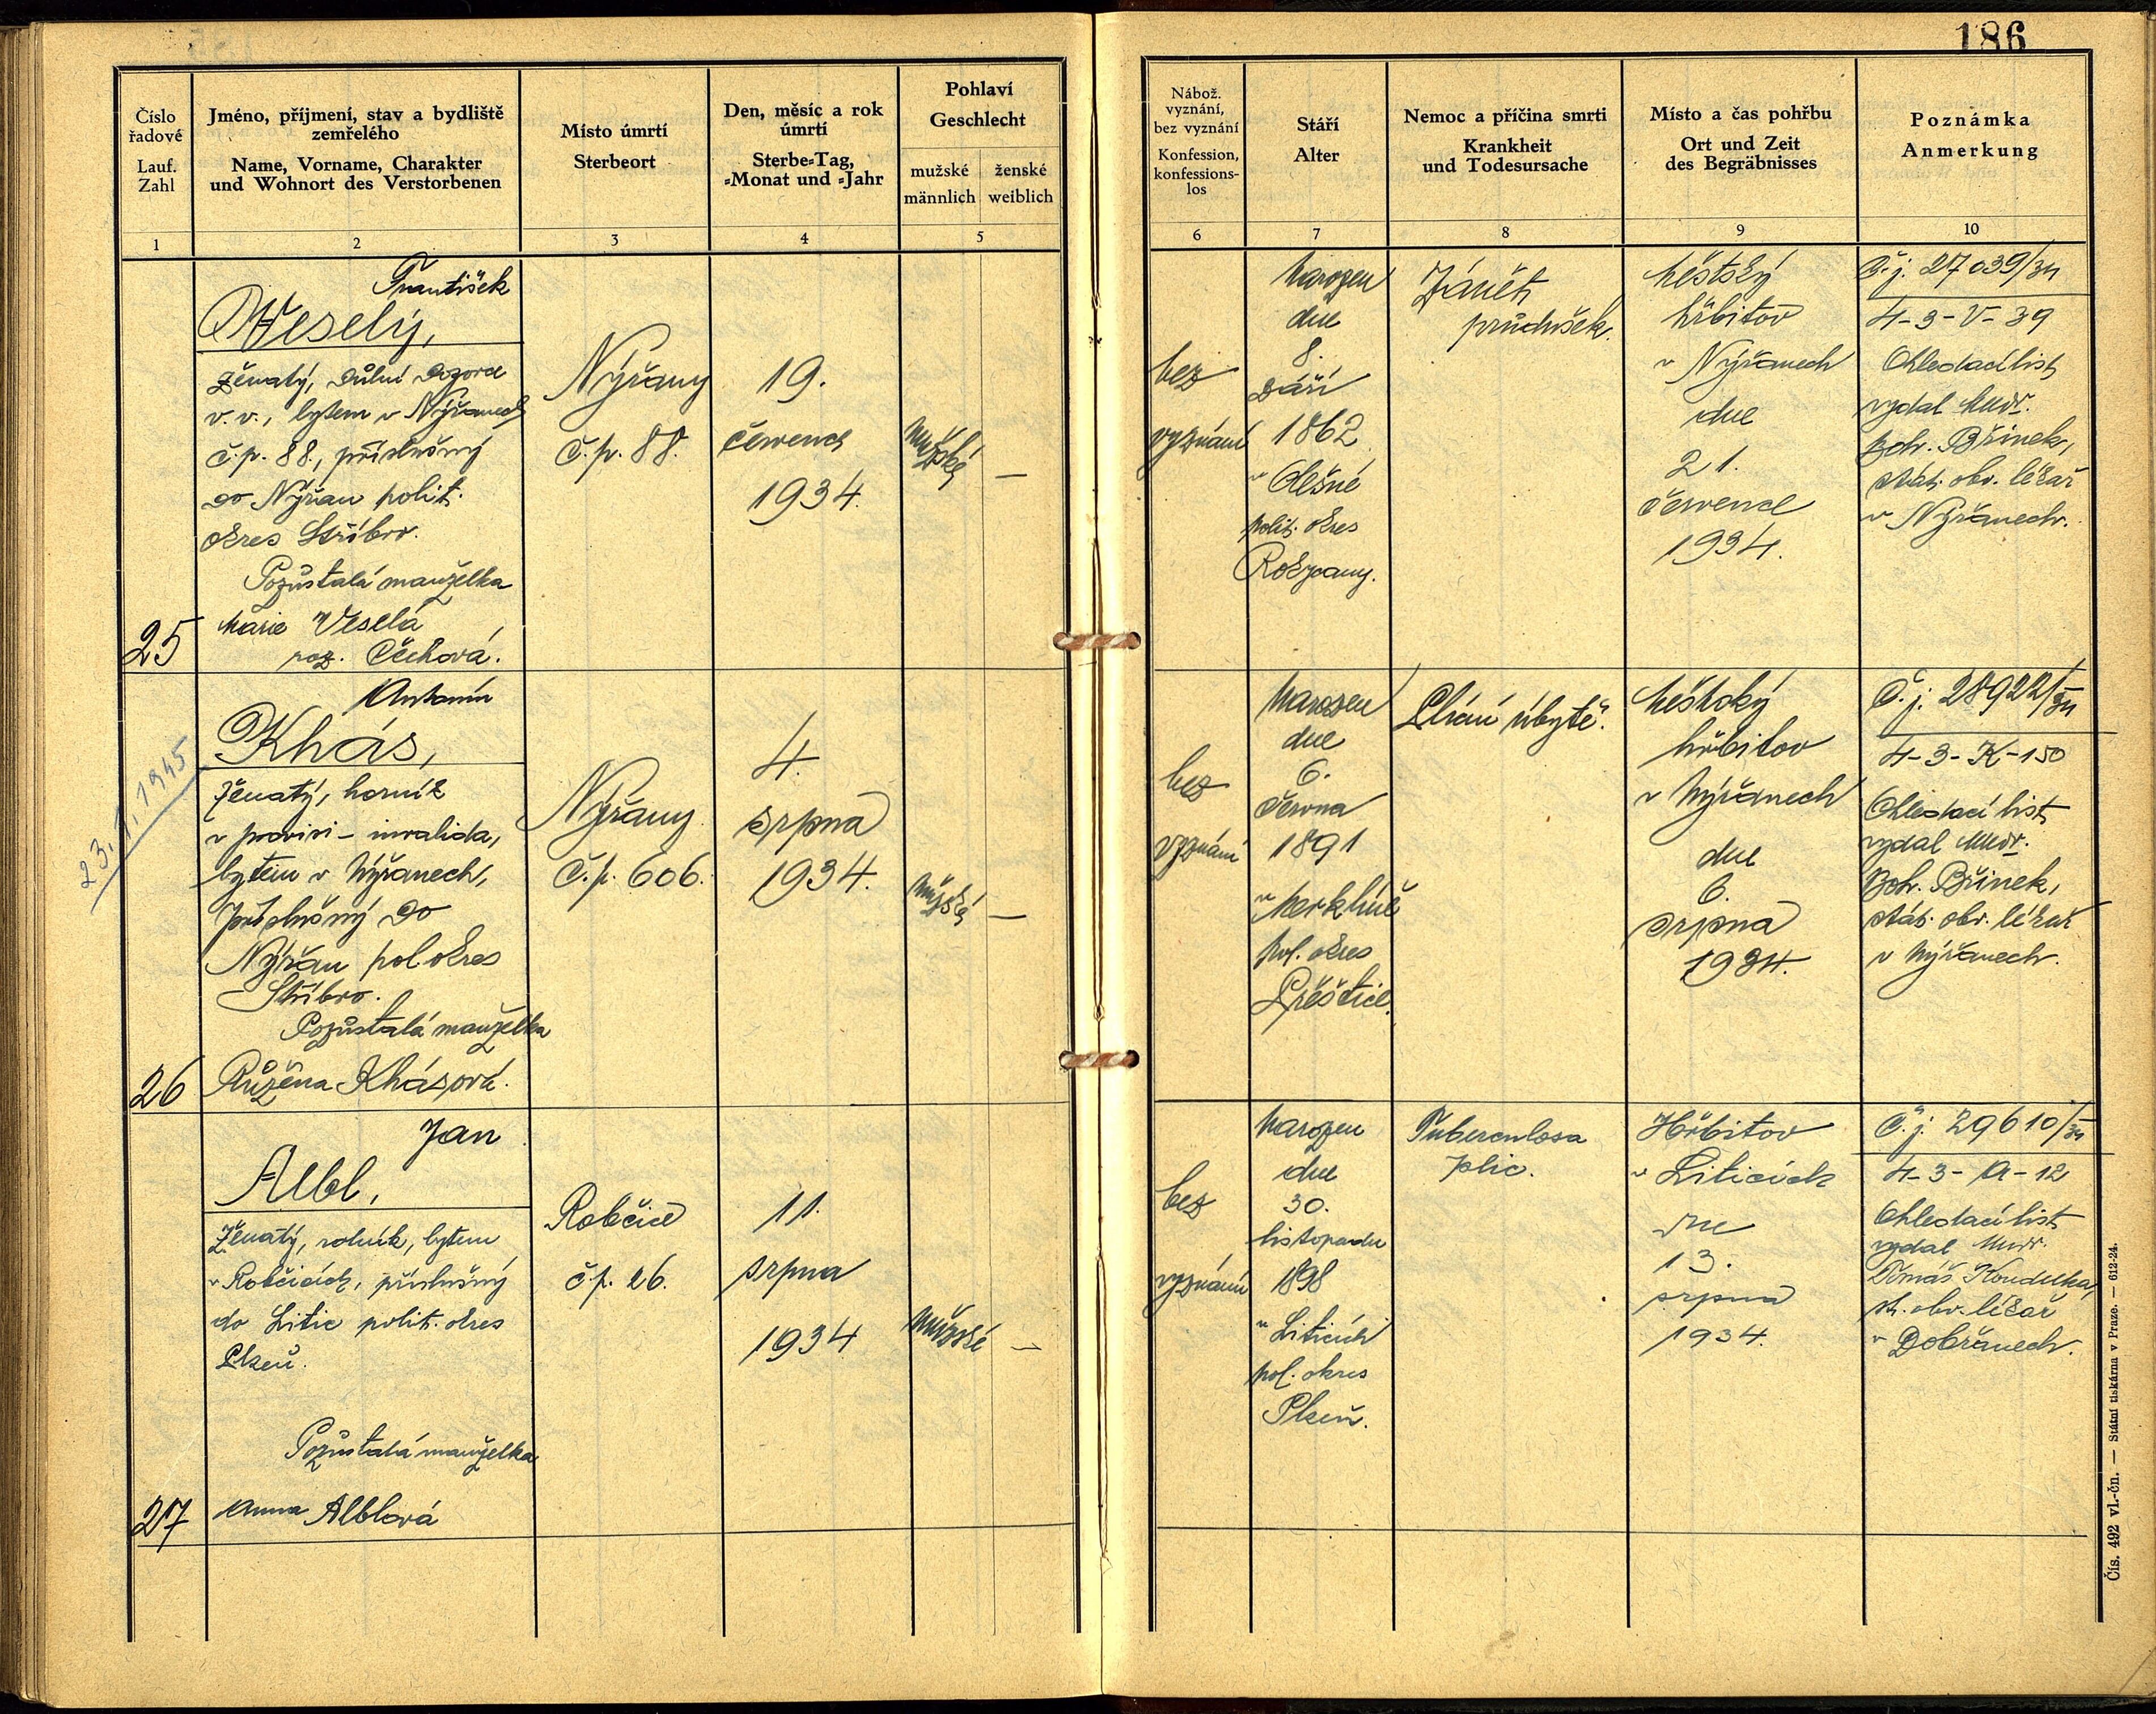 186
Číslo
řadové
Lauf.
Zahl
Jméno, příjmení, stav a bydliště
zemřelého
Name, Vorname, Charakter
und Wohnort des Verstorbenen
Místo úmrtí
Sterbeort
Den, měsíc a rok
úmrtí
Sterbe-Tag,
-Monat und -Jahr
Pohlaví
Geschlecht
mužské
männlich
ženské
weiblich
Nábož.
vyznání,
bez vyznání
Konfession,
konfessions-
los
Stáří
Alter
Nemoc a příčina smrti
Krankheit
und Todesursache
Místo a čas pohřbu
Ort und Zeit
des Begräbnisses
Poznámka
Anmerkung
1
2
3
4
5
6
7
8
9
10
25
František
Veselý,
ženatý, důlní dozorce
v. v., bytem v Nýřanech
č.p. 88., příslušný
do Nýřan polit.
okres Stříbro.
Pozůstalá manželka
Marie Veselá
roz. Čechová.
Nýřany
č.p. 88.
19.
července
1934.
mužské
—
bez
vyznání
Narozen
dne
8.
září
1862
v Olešné
polit. okres
Rokycany.
Zánět
průdušek.
Městský
hřbitov
v Nýřanech
dne
21.
července
1934.
Č.j. 27039/34
4-3-V-39
Ohledací list
vydal Mudr.
Boh. Břinek,
stát. obv. lékař
v Nýřanech.
26
23. I. 1945
Antonín
Khás,
ženatý, horník
v provisi - invalida,
bytem v Nýřanech,
příslušný do
Nýřan pol okres
Stříbro.
Pozůstalá manželka
Růžena Khásová.
Nýřany
č.p. 606.
4.
srpna
1934.
mužské
—
bez
vyznání
Narozen
dne
6.
června
1891
v Merklíně
pol. okres
Přeštice.
Plicní úbytě.
Městský
hřbitov
v Nýřanech
dne
6.
srpna
1934.
Č.j. 28922/34
4-3-K-150
Ohledací list
vydal Mudr.
Boh. Břinek,
stát. obv. lékař
v Nýřanech.
27
Jan
Albl,
Ženatý, rolník, bytem
v Robčicích, příslušný
do Litic polit. okres
Plzeň.
Pozůstalá manželka
Anna Alblová
Robčice
č.p. 26.
11.
srpna
1934
mužské
—
bez
vyznání
Narozen
dne
30.
listopadu
1898
v Liticích
pol. okres
Plzeň.
Tuberculosa
plic.
Hřbitov
v Liticích
dne
13.
srpna
1934.
Č.j. 29610/34
4-3-A-12
Ohledací list
vydal Mudr.
Tomáš Koudelka,
st. obv. lékař
v Dobřanech.
Čís. 492 vl.-čn. — Státní tiskárna v Praze. — 612-24.